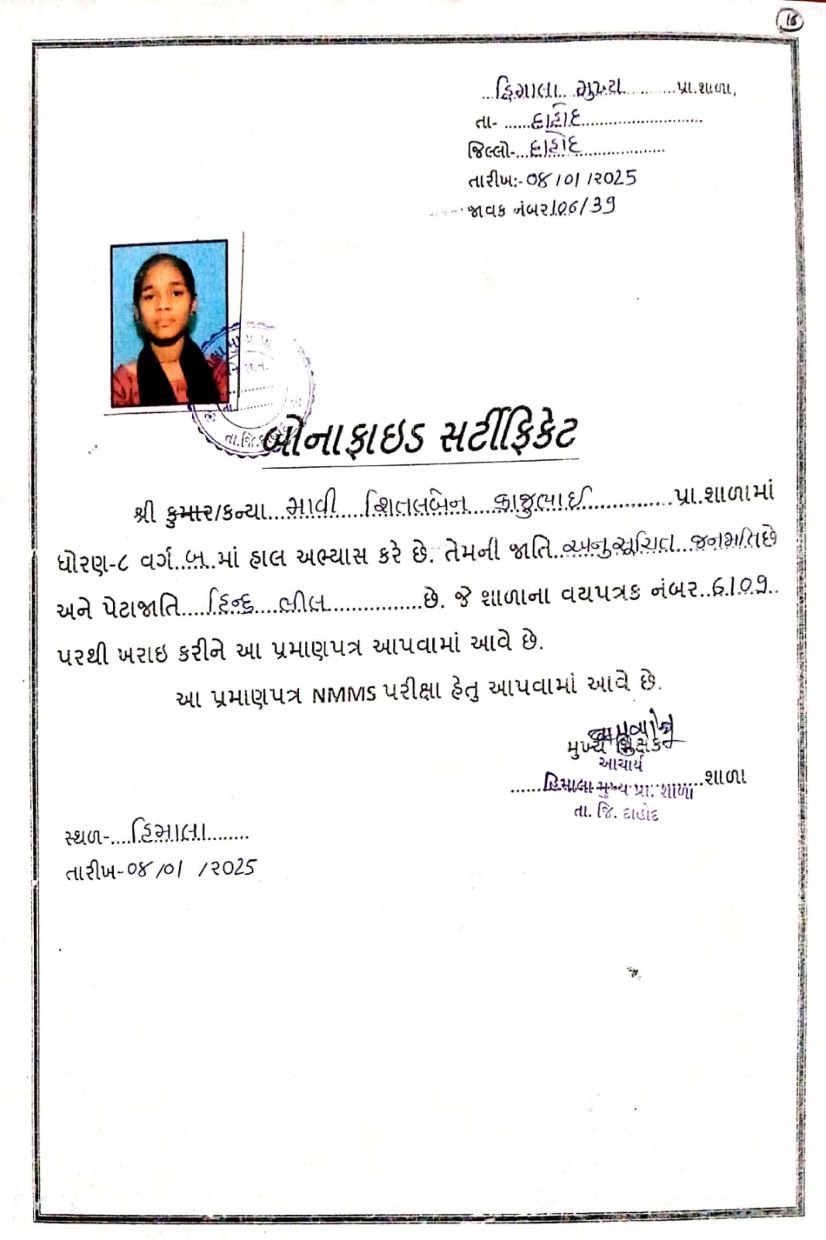 ૧૬
હિમાલા મુખ્ય પ્રા.શાળા,
તા- દાહોદ
જિલ્લો- દાહોદ
તારીખ:- ૦૪/૦૧/૨૦25
જાવક નંબર 106/39
બોનાફાઇડ સર્ટીફિકેટ
શ્રી કુમાર/કન્યા માવી શિતલબેન કાજુભાઈ પ્રા.શાળામાં
ધોરણ-૮ વર્ગ બ માં હાલ અભ્યાસ કરે છે. તેમની જાતિ અનુસૂચિત જનજાતિ છે
અને પેટાજાતિ હિન્દુ ભીલ છે. જે શાળાના વયપત્રક નંબર 6109
પરથી ખરાઇ કરીને આ પ્રમાણપત્ર આપવામાં આવે છે.
આ પ્રમાણપત્ર NMMS પરીક્ષા હેતુ આપવામાં આવે છે.
મુખ્ય શિક્ષક
આચાર્ય
હિમાલા મુખ્ય પ્રા. શાળા શાળા
તા. જિ. દાહોદ
સ્થળ- હિમાલા
તારીખ- ૦૪/૦૧/૨૦25